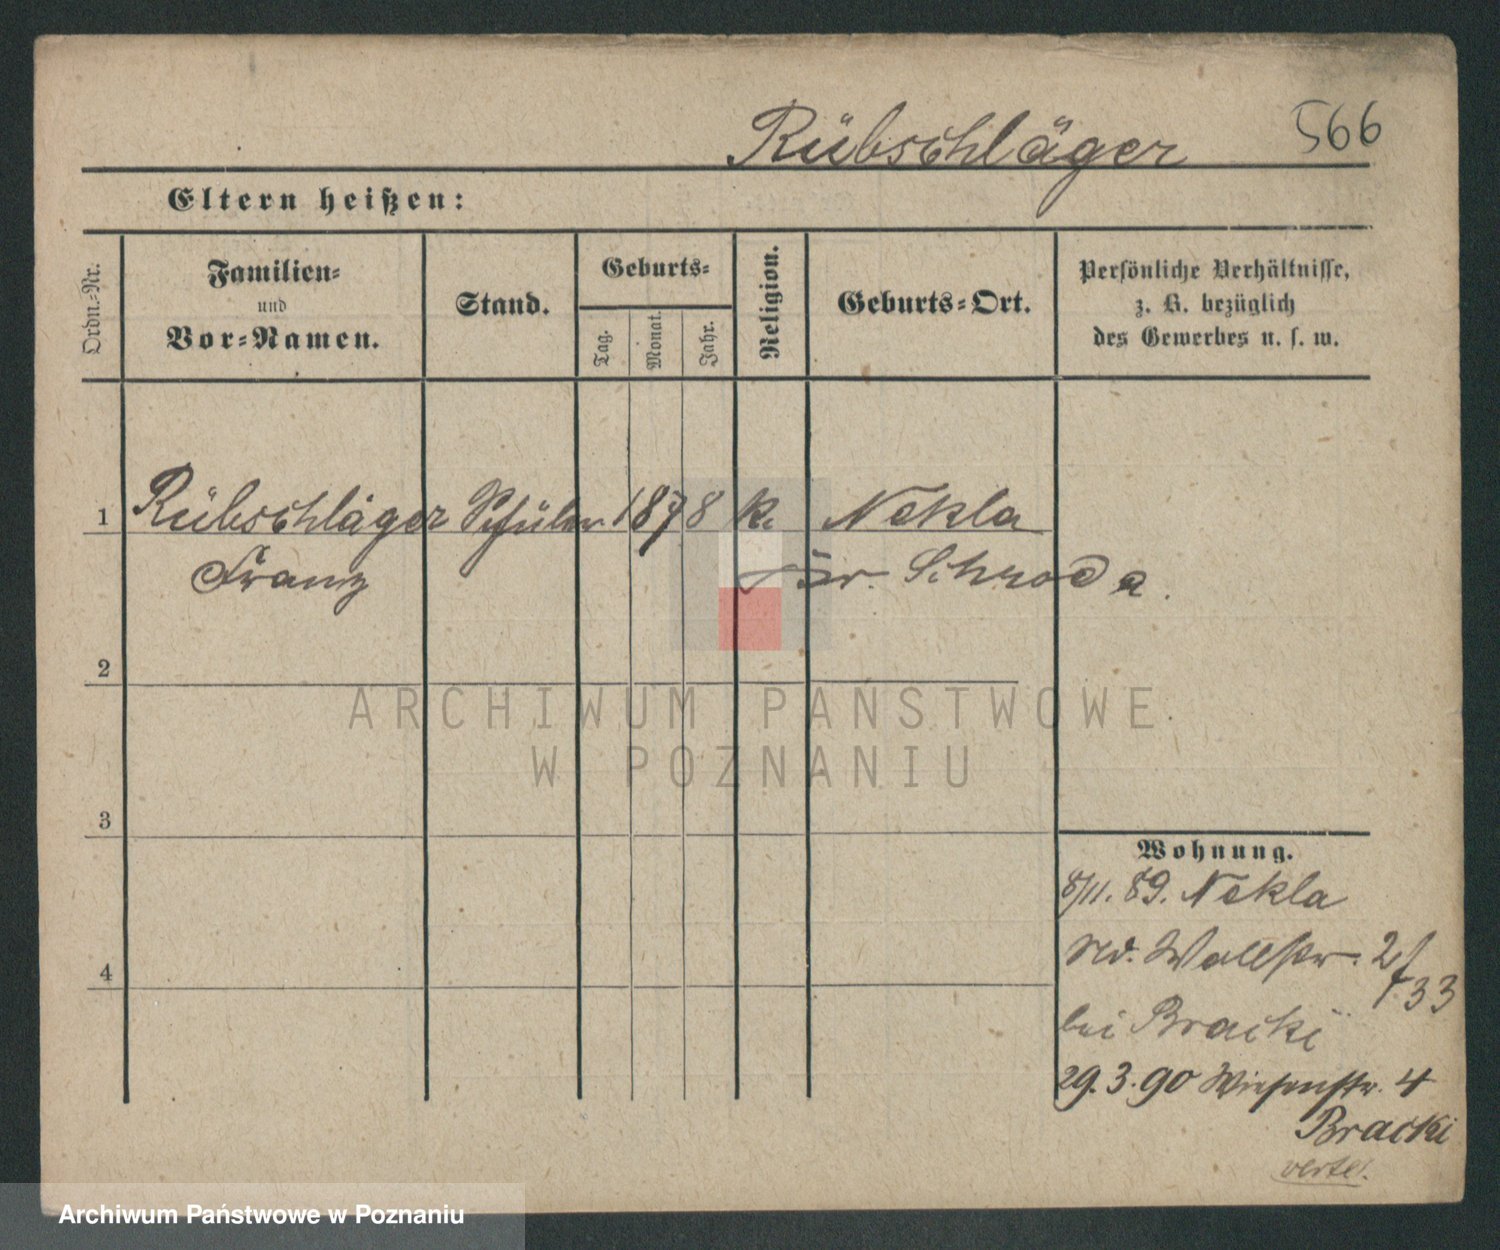 Rübschläger 566
Eltern heißen:
Ordn.-Nr.
Familien-
und
Vor-Namen.
Stand.
Geburts-
Tag.
Monat.
Jahr.
Religion.
Geburts-Ort.
Persönliche Verhältnisse,
z. B. bezüglich
des Gewerbes u. s. w.
1 Rübschläger Schüler 1878 k. Nekla
Franz Kr. Schroda.
2
ARCHIWUM PAŃSTWOWE
W POZNANIU
3
Wohnung.
8/11. 89. Nekla
Wallstr. 2/
4
33
bei Bracki
29.3.90 Wiesenstr. 4
Bracki
verte!
Archiwum Państwowe w Poznaniu